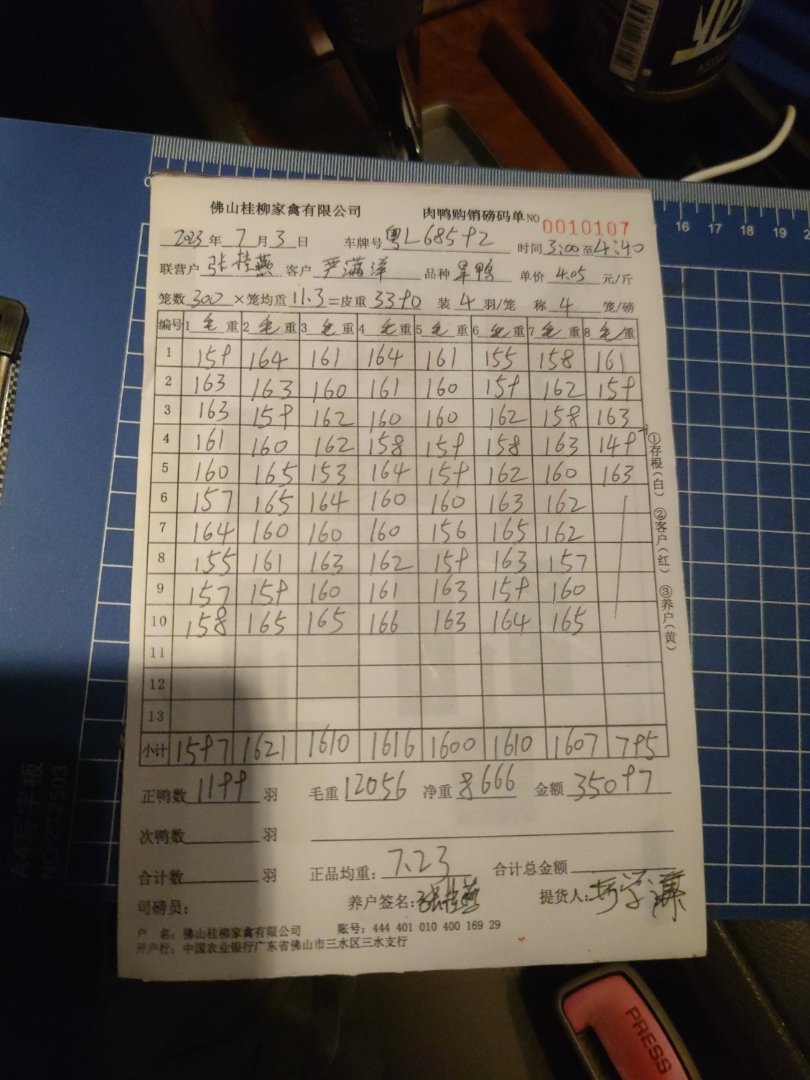 佛山桂柳家禽有限公司 肉鸭购销磅码单 NO 0010107
2023 年 7 月 3 日 车牌号 粤L68592 时间 3:00 至 4:40
联营户 张桂燕 客户 严潇洋 品种 旱鸭 单价 4.05 元/斤
笼数 300 ×笼均重 11.3 =皮重 3390 装 4 羽/笼 称 4 笼/磅
编号 1 毛 重 2 毛 重 3 毛 重 4 毛 重 5 毛 重 6 毛 重 7 毛 重 8 毛 重
1 159 164 161 164 161 155 158 161
2 163 163 160 161 160 159 162 159
3 163 159 162 160 160 162 158 163
4 161 160 162 158 159 158 163 149
5 160 165 153 164 159 162 160 163
6 157 165 164 160 160 163 162
7 164 160 160 160 156 165 162
8 155 161 163 162 159 163 157
9 157 159 160 161 163 159 160
10 158 165 165 166 163 164 165
11
12
13
小计 1597 1621 1610 1616 1600 1610 1607 795
正鸭数 1199 羽 毛重 12056 净重 8666 金额 35097
次鸭数 羽
合计数 羽 正品均重: 7.23 合计总金额
司磅员: 养户签名: 张桂燕 提货人:
户 名: 佛山桂柳家禽有限公司 账号: 444 401 010 400 169 29
开户行: 中国农业银行广东省佛山市三水区三水支行
①存根(白) ②客户(红) ③养户(黄)
16 17 18 19
A4写字板
NO:Z12503
PRESS